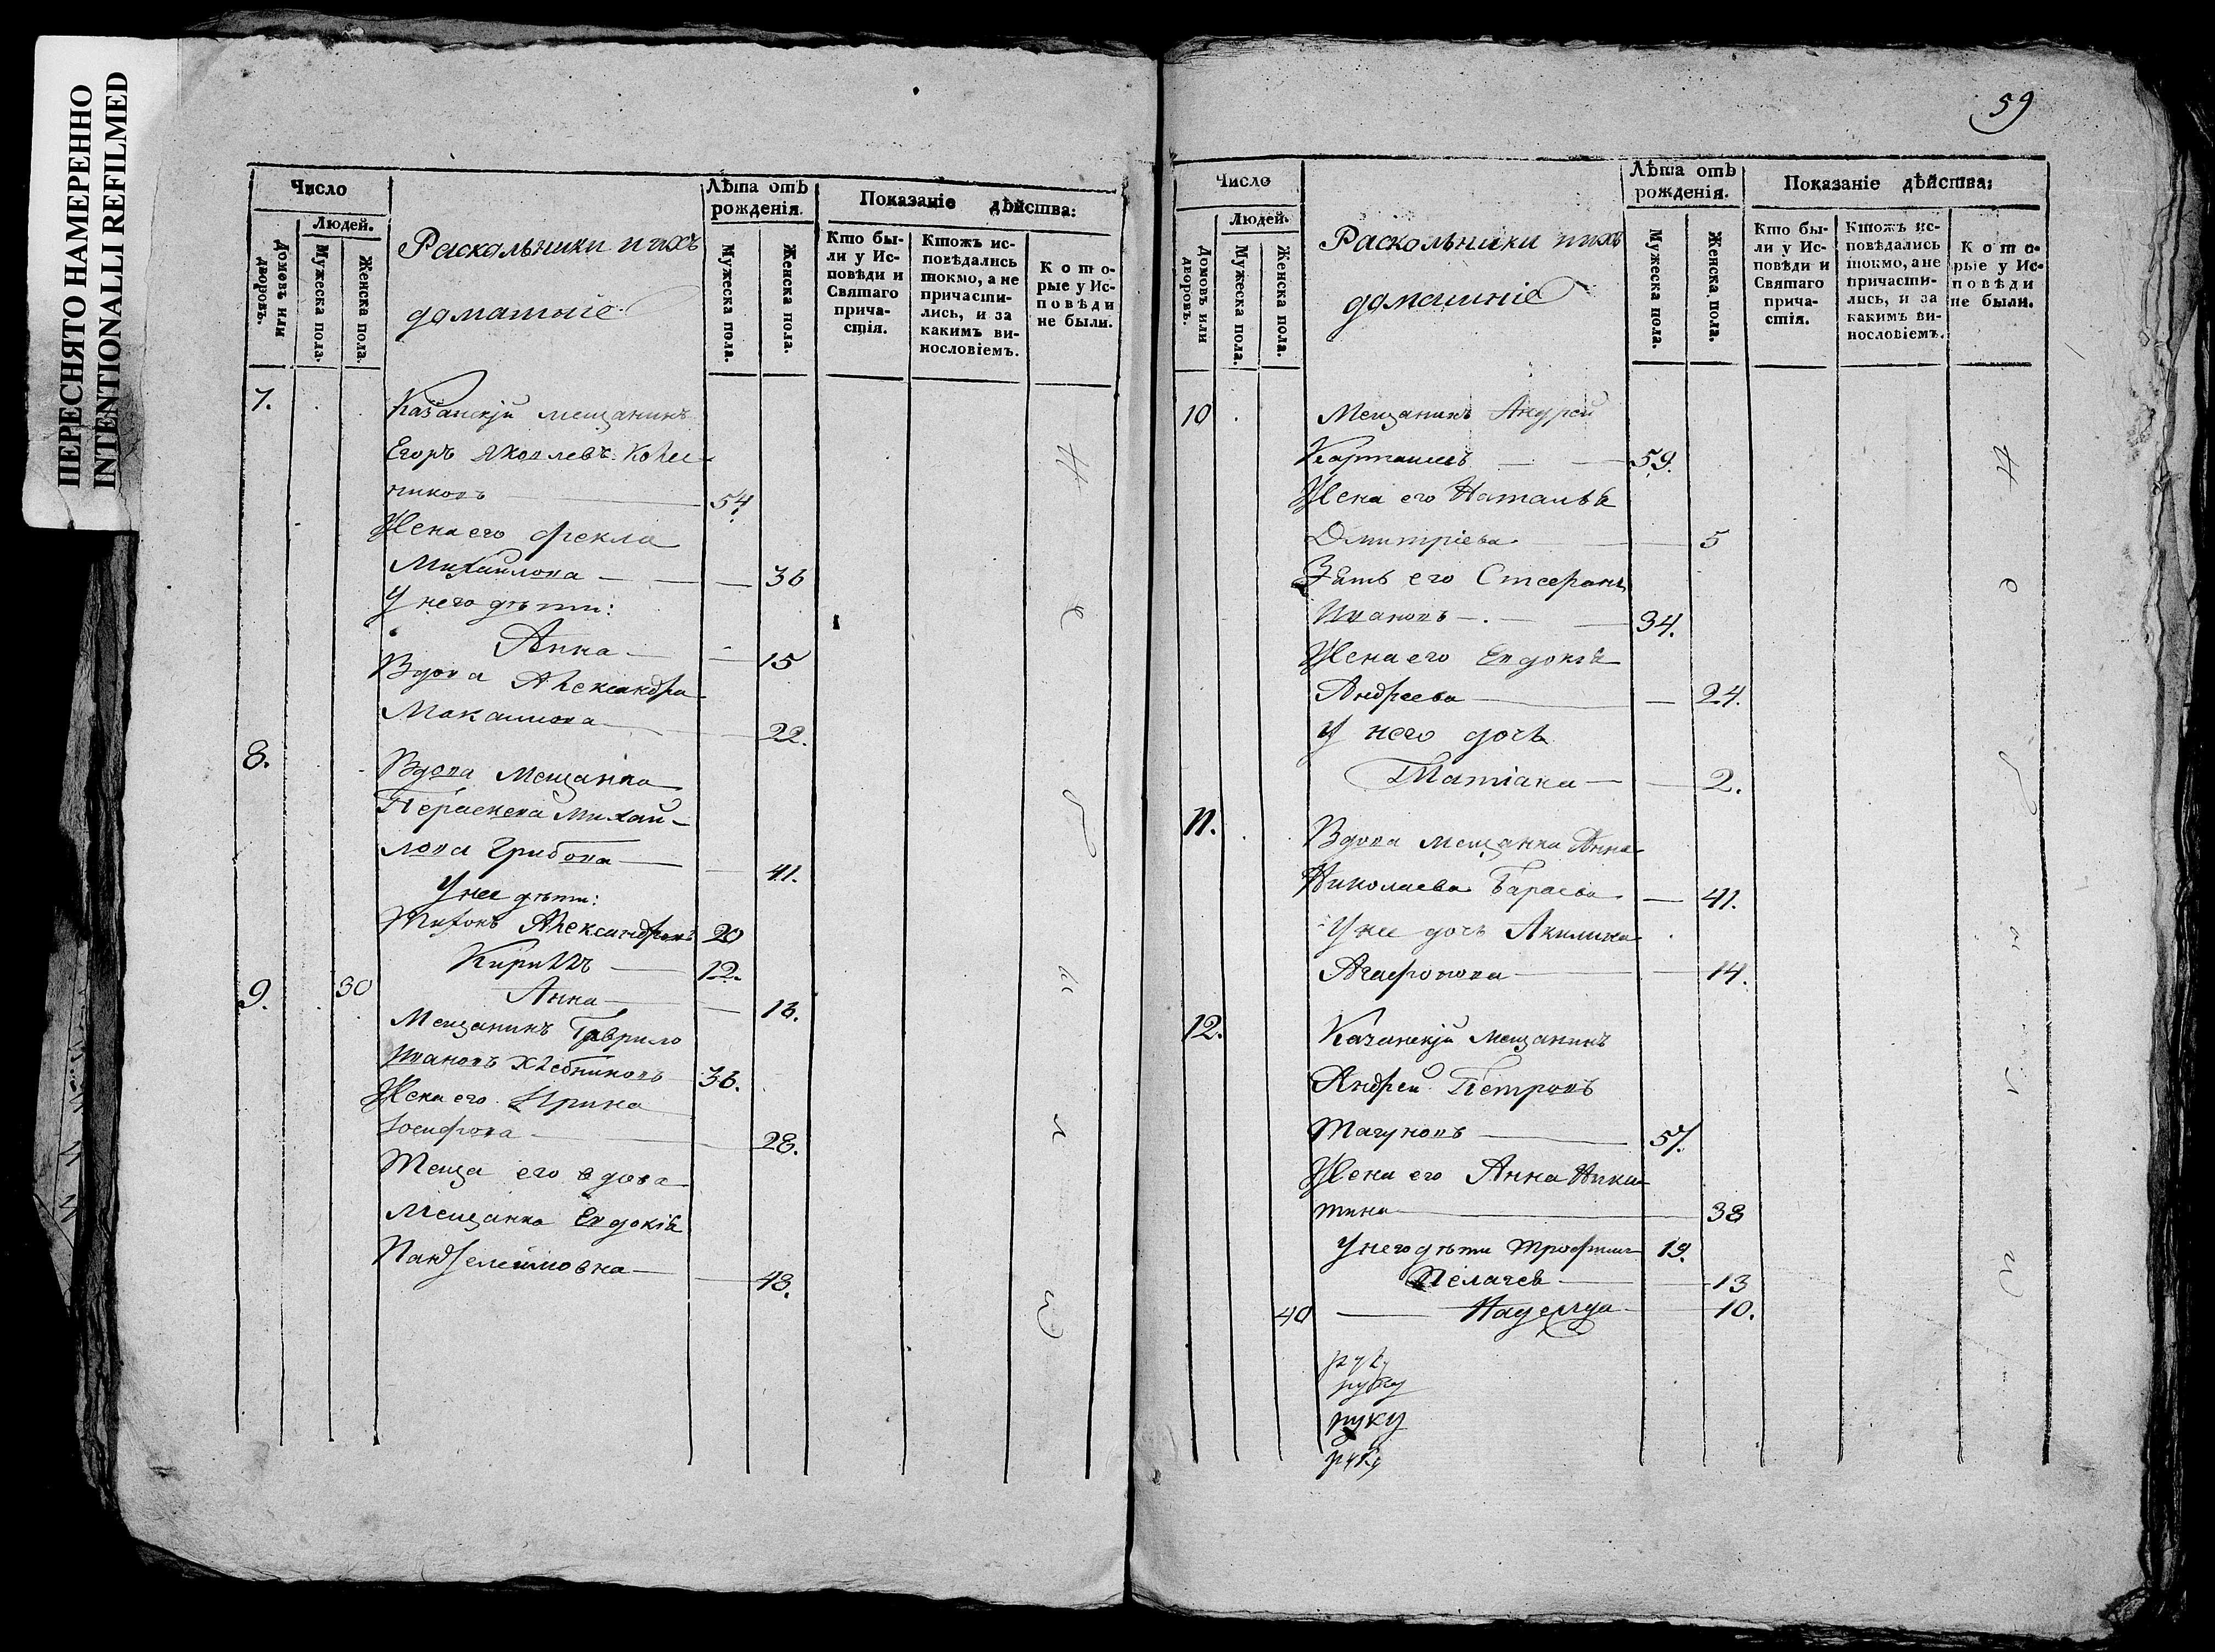 ПЕРЕСНЯТО НАМЕРЕННО
INTENTIONALLI REFILMED
Число
Людей.
Домовъ или дворовъ.
Мужеска пола.
Женска пола.
Раскольники и ихъ
домашніе
Лѣта отъ
рожденія.
Мужеска пола.
Женска пола.
Показаніе дѣйства:
Кто бы-
ли у Ис-
повѣди и
Святаго
прича-
стія.
Ктожъ ис-
повѣдались
токмо, а не
причасти-
лись, и за
какимъ ви-
нословіемъ.
Кото-
рые у Ис-
повѣди
не были.
7. Казанскій мещанинъ
Егоръ Яковлевъ
никовъ 54
Жена его Фекла
Михайлова 36
У него дѣти:
Анна 15
Вдова Александра
Максимова 22.
8. Вдова мещанка
Михай-
лова Грибова 41.
У нее дѣти:
Тихонъ Александровъ 20
Кириллъ 12.
30 Анна 16.
9. Мещанинъ Гаврило
Ивановъ Хлебниковъ 36.
Жена его Ирина
Іосифова 28.
Теща его вдова
Мещанка Евдокія
48.
Не были
59
Число
Людей.
Домовъ или дворовъ.
Мужеска пола.
Женска пола.
Раскольники и ихъ
домашніе
Лѣта отъ
рожденія.
Мужеска пола.
Женска пола.
Показаніе дѣйства:
Кто бы-
ли у Ис-
повѣди и
Святаго
прича-
стія.
Ктожъ ис-
повѣдались
токмо, а не
причасти-
лись, и за
какимъ ви-
нословіемъ.
Кото-
рые у Ис-
повѣди
не были.
10 Мещанинъ Андрей
59.
Жена его Наталья
Дмитріева 5
Зять его Стефанъ
Ивановъ 34.
Жена его Евдокія
Андреева 24.
У него дочь
Татіана 2.
11. Вдова мещанка Анна
Николаева Бараева 41.
У нее дочь Акилина
Агафонова 14.
12. Казанскій мещанинъ
Андрей Петровъ
Тагуновъ 57.
Жена его Анна Ники-
тина 38
У него дѣти Трофимъ 19.
Пелагея 13
40 Надежда 10.
руку
руку
руку
руку
Не были